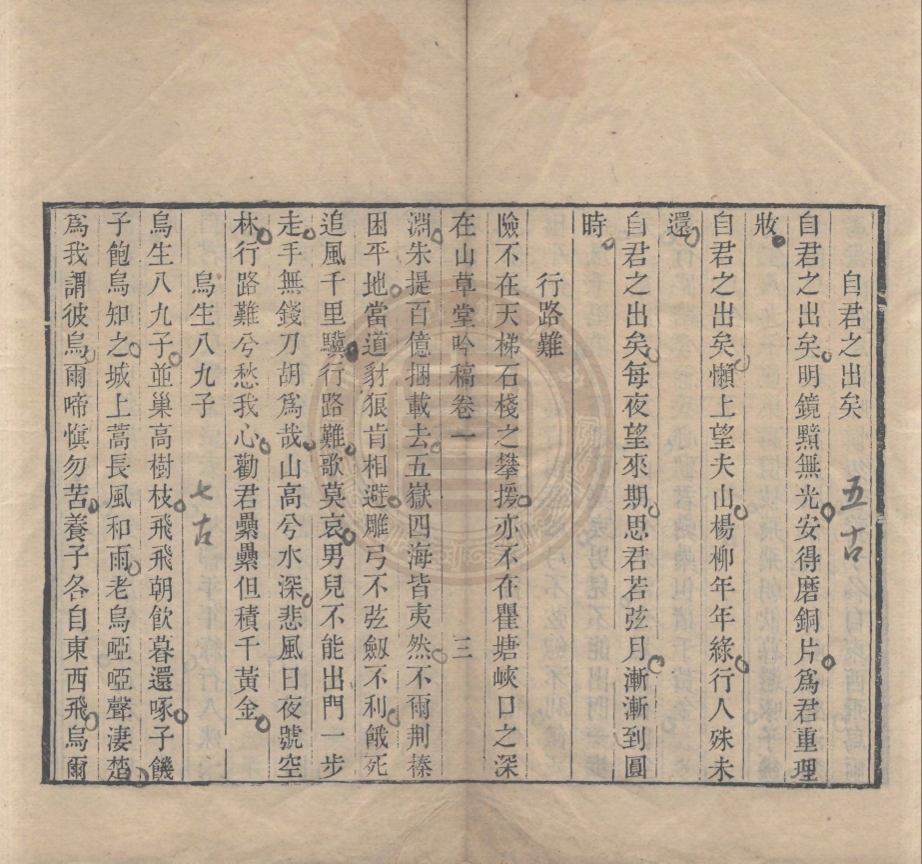 自君之出矣 五古
自君之出矣明鏡黯無光安得磨銅片爲君重理
妝
自君之出矣懶上望夫山楊柳年年綠行人殊未
還
自君之出矣每夜望來期思君若弦月漸漸到圓
時
行路難
險不在天梯石棧之攀援亦不在瞿塘峽口之深
在山草堂吟稿卷一 三
淵朱提百億捆載去五嶽四海皆夷然不爾荆榛
困平地當道豺狼肯相避雕弓不弦劔不利餓死
追風千里驥行路難歌莫哀男兒不能出門一步
走手無錢刀胡爲哉山高兮水深悲風日夜號空
林行路難兮愁我心勸君纍纍但積千黃金
烏生八九子 七古
烏生八九子並巢高樹枝飛飛朝飲暮還啄子饑
子飽烏知之城上蒿長風和雨老烏啞啞聲凄楚
爲我謂彼烏爾啼愼勿苦養子各自東西飛烏爾